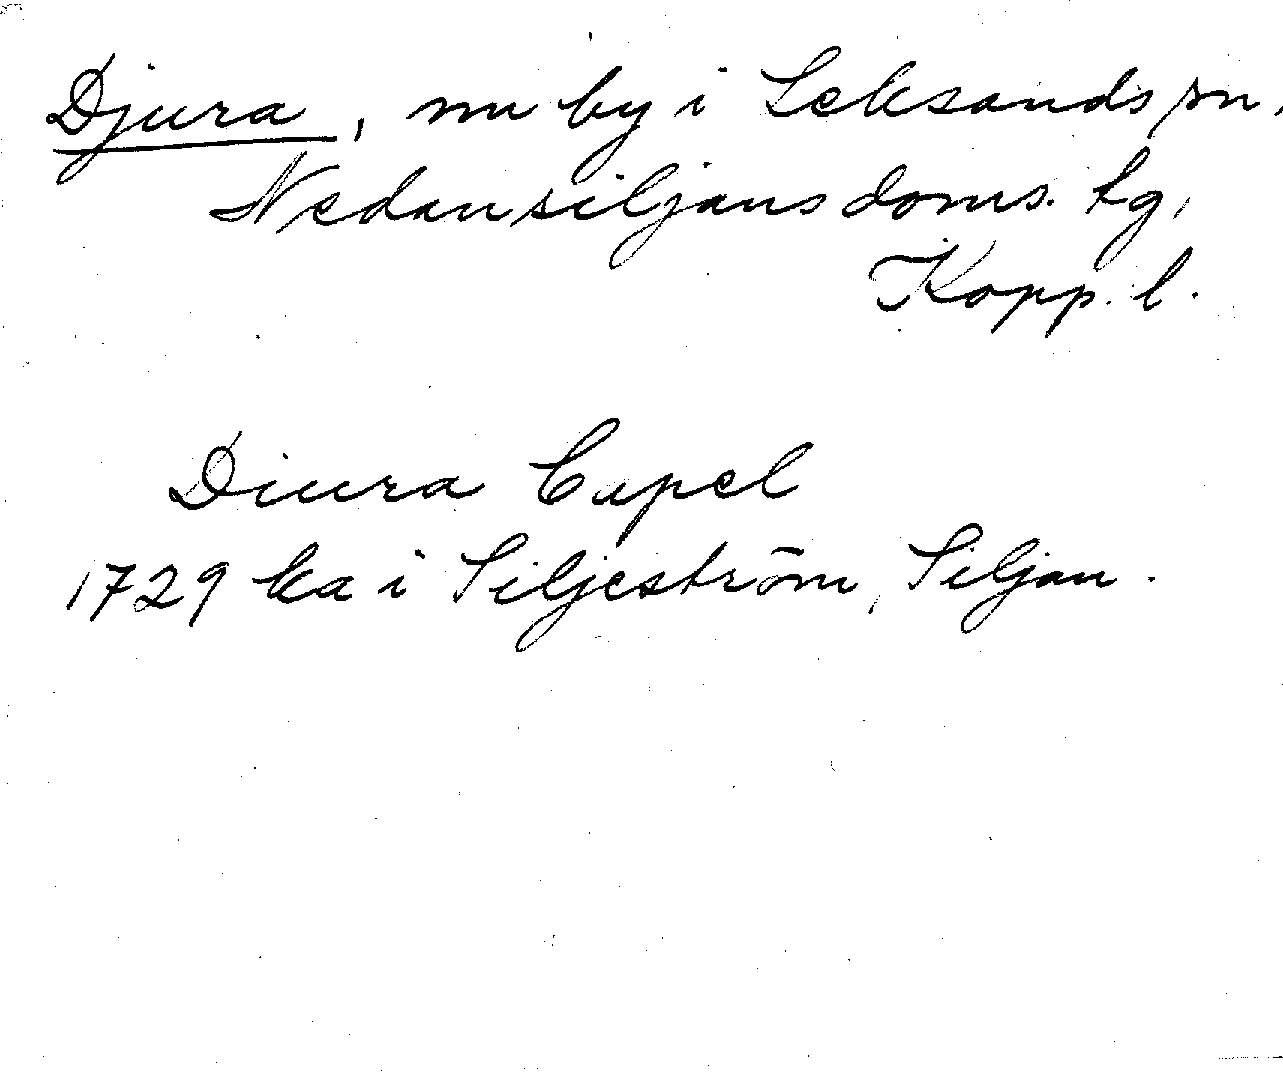 Djura, nu by i Leksands sn,
Nedansiljans doms. tg,
Kopp. l.
Diura Capel
1729 ka i Siljeström, Siljan.